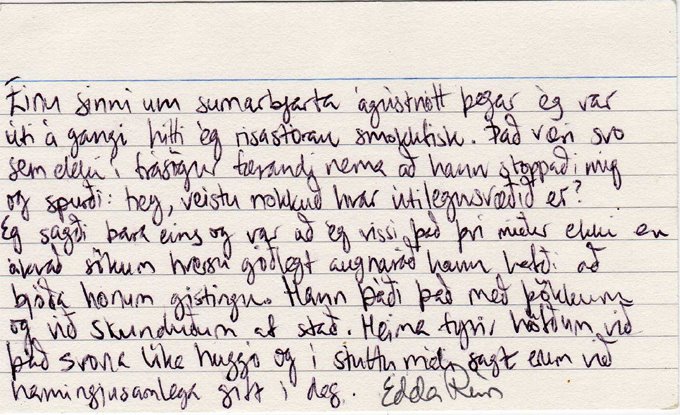 Einu sinni um sumarbjarta ágústnótt þegar ég var
úti á gangi hitti ég risastóran smokkfisk. Það væri svo
sem ekki í frásögur færandi nema að hann stoppaði mig
og spurði: hey, veistu nokkuð hvar útilegusvæðið er?
Ég sagði bara eins og var að ég vissi það því miður ekki en
ákvað sökum hversu góðlegt augnaráð hann hafði að
bjóða honum gistingu. Hann þáði það með þökkum
og við skunduðum af stað. Heima fyrir höfðum við
það svona líka huggó og í stuttu máli sagt erum við
hamingjusamlega gift í dag. Edda